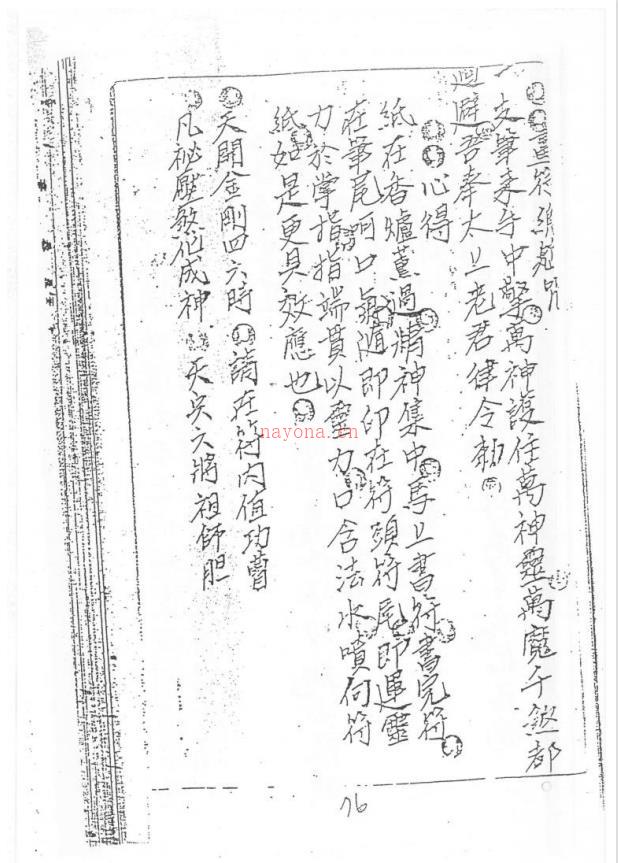 畫符總笔咒
一支筆來手中擎萬神護住萬神靈萬魔千煞都
迴避吾奉太上老君律令勅
心得
紙在香爐薰過精神集中馬上書符書完符
在筆尾呵口氣隨即印在符頭符尾即運靈
力於掌指指端貫以靈力口含法水噴向符
紙如是更具效應也
天開金剛四六時 請在符內值功曹
凡祕壓煞化成神 天兵六將祖師胆
nayona.cn
76